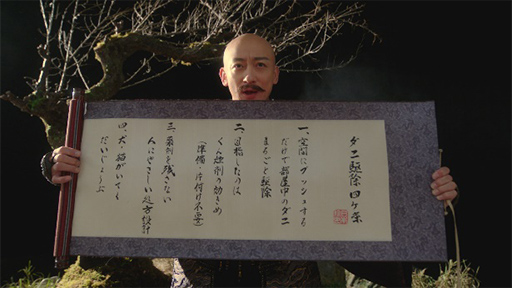 ダニ駆除四ケ条
一、空間にプッシュする
だけで部屋中のダニ
まるごと駆除
二、目指したのは
くん煙剤の効きめ
(準備・片付け不要)
三、薬剤を残さない
人にやさしい処方設計
四、犬、猫がいても
だいじょうぶ